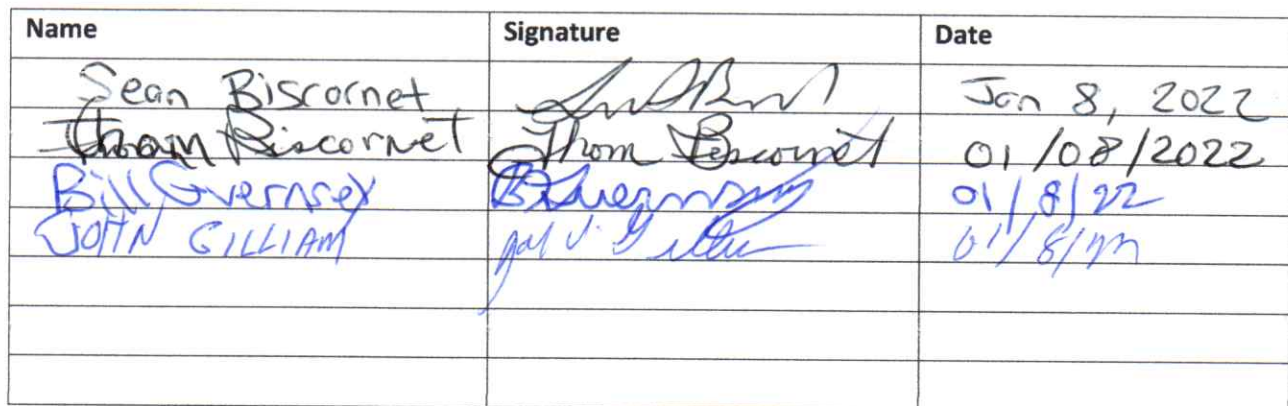 Name Signature Date
Sean Biscornet Jan 8, 2022
Biscornet Thom Biscornet 01/08/2022
Bill Guernsey B Guernsey 01/8/22
JOHN GILLIAM 01/8/22